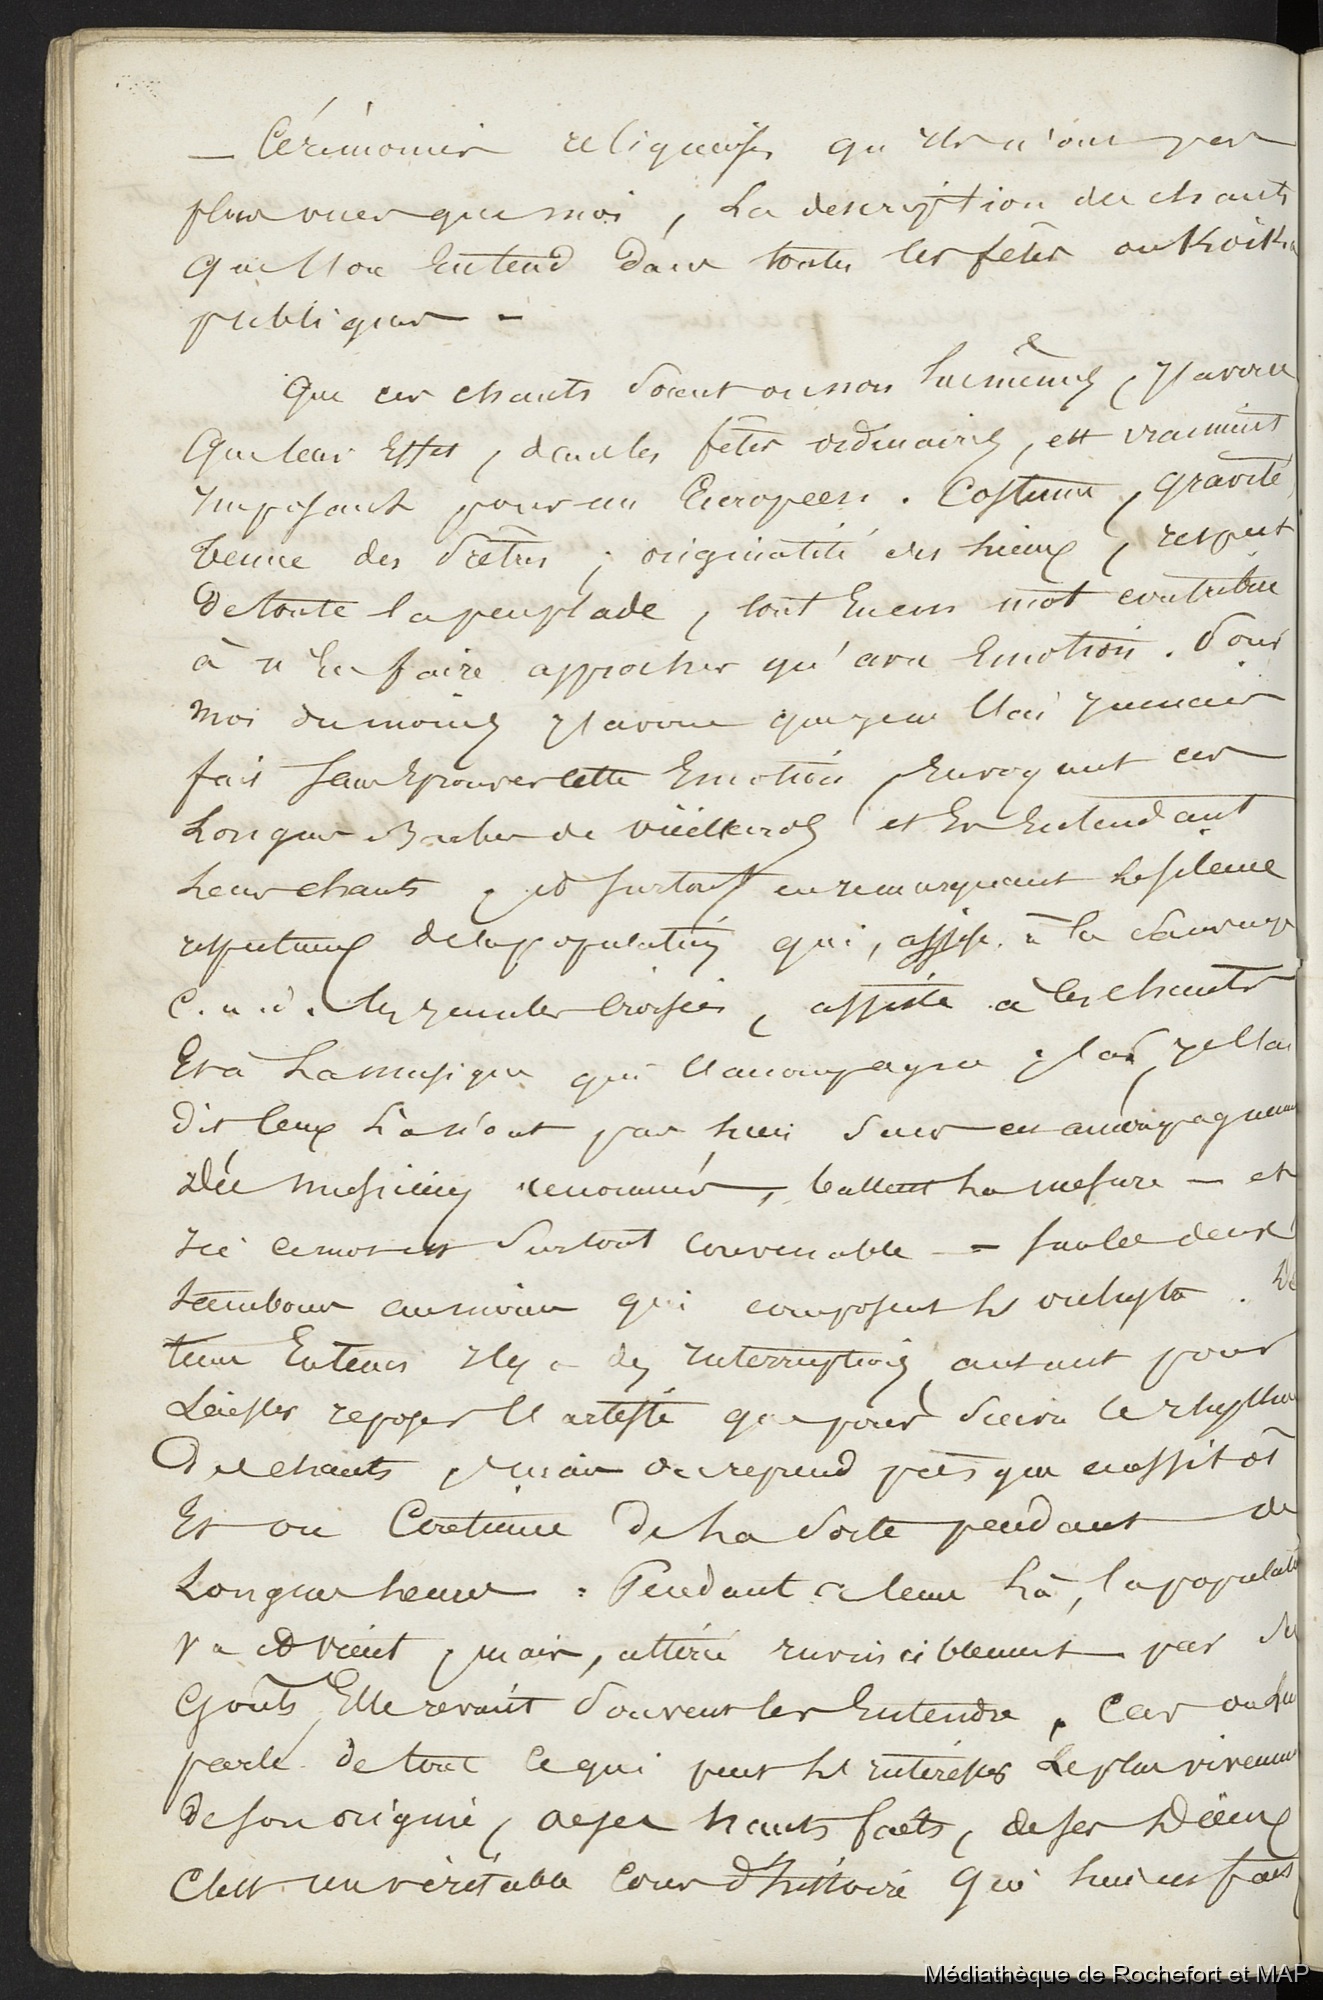 — Cérémonies religieuses qu'ils n'ont pas
plus vues que moi, la description des chants
que l'on entend dans toutes les fêtes ou Koika
publiques —
Que ces chants soient ou non les mêmes, j'avoue
que leur effet, dans les fêtes ordinaires, est vraiment
imposant pour un Européen. Costume, gravité,
tenue des Prêtres, originalité des lieux, respect
de toute la peuplade, tout en un mot contribue
à n'en faire approcher qu'avec émotion. Pour
moi du moins j'avoue que je ne l'ai jamais
fait sans éprouver cette émotion, en voyant ces
longues barbes de vieillards et en entendant
leurs chants, et surtout en remarquant le silence
respectueux de la population qui, assise à la sauvage
c.a.d. les jambes croisées, assiste à ces chants
et à la musique qui l'accompagne. Là, je l'ai
dit ceux là n'ont pas lieu sans accompagnement
Des musiciens renommés, battent la mesure — et
ici ce mot est surtout convenable — sur les deux
tambours au moins qui composent l'orchestre. De
tems en tems il y a des interruptions autant pour
laisser reposer l'artiste que pour suivre le rhythme
des chants, mais on reprend presque aussitôt
et on continue de la sorte pendant de
longues heures. Pendant ce tems là, la population
va et vient, mais, attirée invinciblement par ses
goûts, elle revient souvent les entendre. Car on lui
parle de tout ce qui peut l'intéresser le plus vivement
de son origine, de ses hauts faits, de ses Dieux
C'est un véritable cours d'histoire qui lui est fait
Médiathèque de Rochefort et MAP